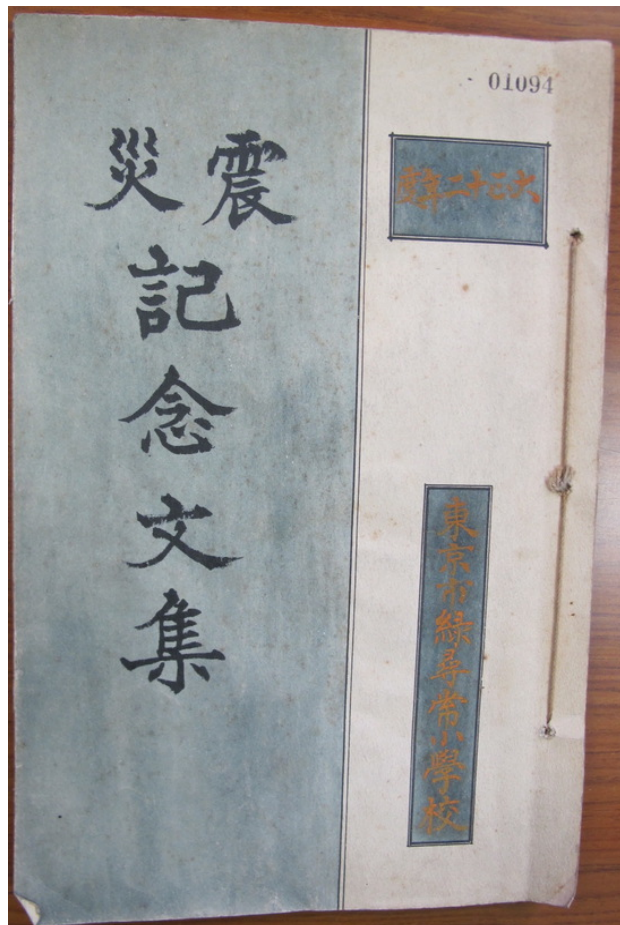 01094
大正十二
東京市緑尋常小學校
震災記念文集